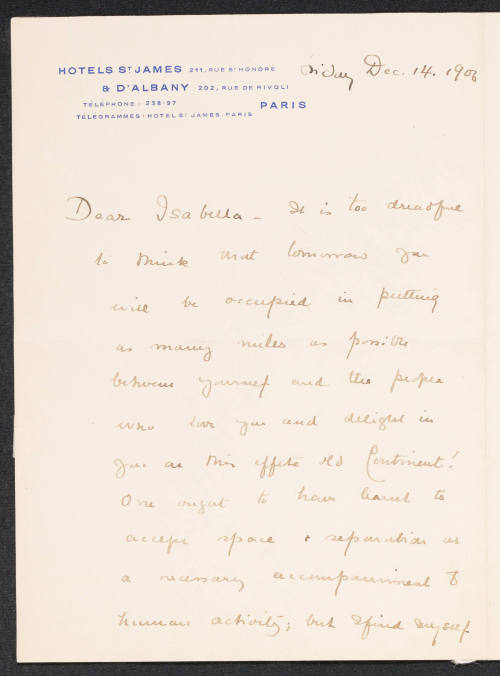 HOTELS ST JAMES 211, RUE ST HONORÉ
& D'ALBANY 202, RUE DE RIVOLI
TÉLÉPHONE: 238-97 PARIS
TÉLÉGRAMMES: HOTEL ST JAMES. PARIS
Friday Dec. 14. 1906
Dear Isabella - It is too dreadful
to think that tomorrow you
will be occupied in putting
as many miles as possible
between yourself and the people
who love you and delight in
you on this effete old Continent!
One ought to have learnt to
accept space & separation as
a necessary accompaniment to
human activity; but I find myself